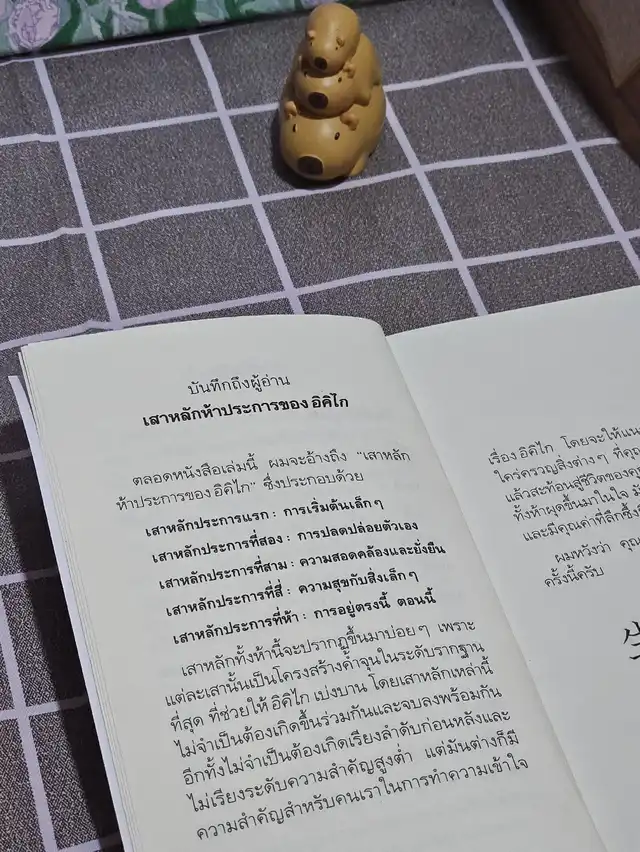 บันทึกถึงผู้อ่าน
เสาหลักห้าประการของ อิคิไก
ตลอดหนังสือเล่มนี้ ผมจะอ้างถึง “เสาหลัก
ห้าประการของ อิคิไก” ซึ่งประกอบด้วย
เสาหลักประการแรก : การเริ่มต้นเล็กๆ
เสาหลักประการที่สอง : การปลดปล่อยตัวเอง
เสาหลักประการที่สาม : ความสอดคล้องและยั่งยืน
เสาหลักประการที่สี่ : ความสุขกับสิ่งเล็กๆ
เสาหลักประการที่ห้า : การอยู่ตรงนี้ ตอนนี้
เสาหลักทั้งห้านี้จะปรากฏขึ้นมาบ่อยๆ เพราะ
แต่ละเสานั้นเป็นโครงสร้างค้ำจุนในระดับรากฐาน
ที่สุด ที่ช่วยให้ อิคิไก เบ่งบาน โดยเสาหลักเหล่านี้
ไม่จำเป็นต้องเกิดขึ้นร่วมกันและจบลงพร้อมกัน
อีกทั้งไม่จำเป็นต้องเกิดเรียงลำดับก่อนหลังและ
ไม่เรียงระดับความสำคัญสูงต่ำ แต่มันต่างก็มี
ความสำคัญสำหรับคนเราในการทำความเข้าใจ
เรื่อง อิคิไก โดยจะให้แน
ใคร่ครวญสิ่งต่างๆ ที่คุณ
แล้วสะท้อนสู่ชีวิตของคุ
ทั้งห้าผุดขึ้นมาในใจ
และมีคุณค่าที่ลึกซึ้ง
ผมหวังว่า คุณ
ครั้งนี้ครับ